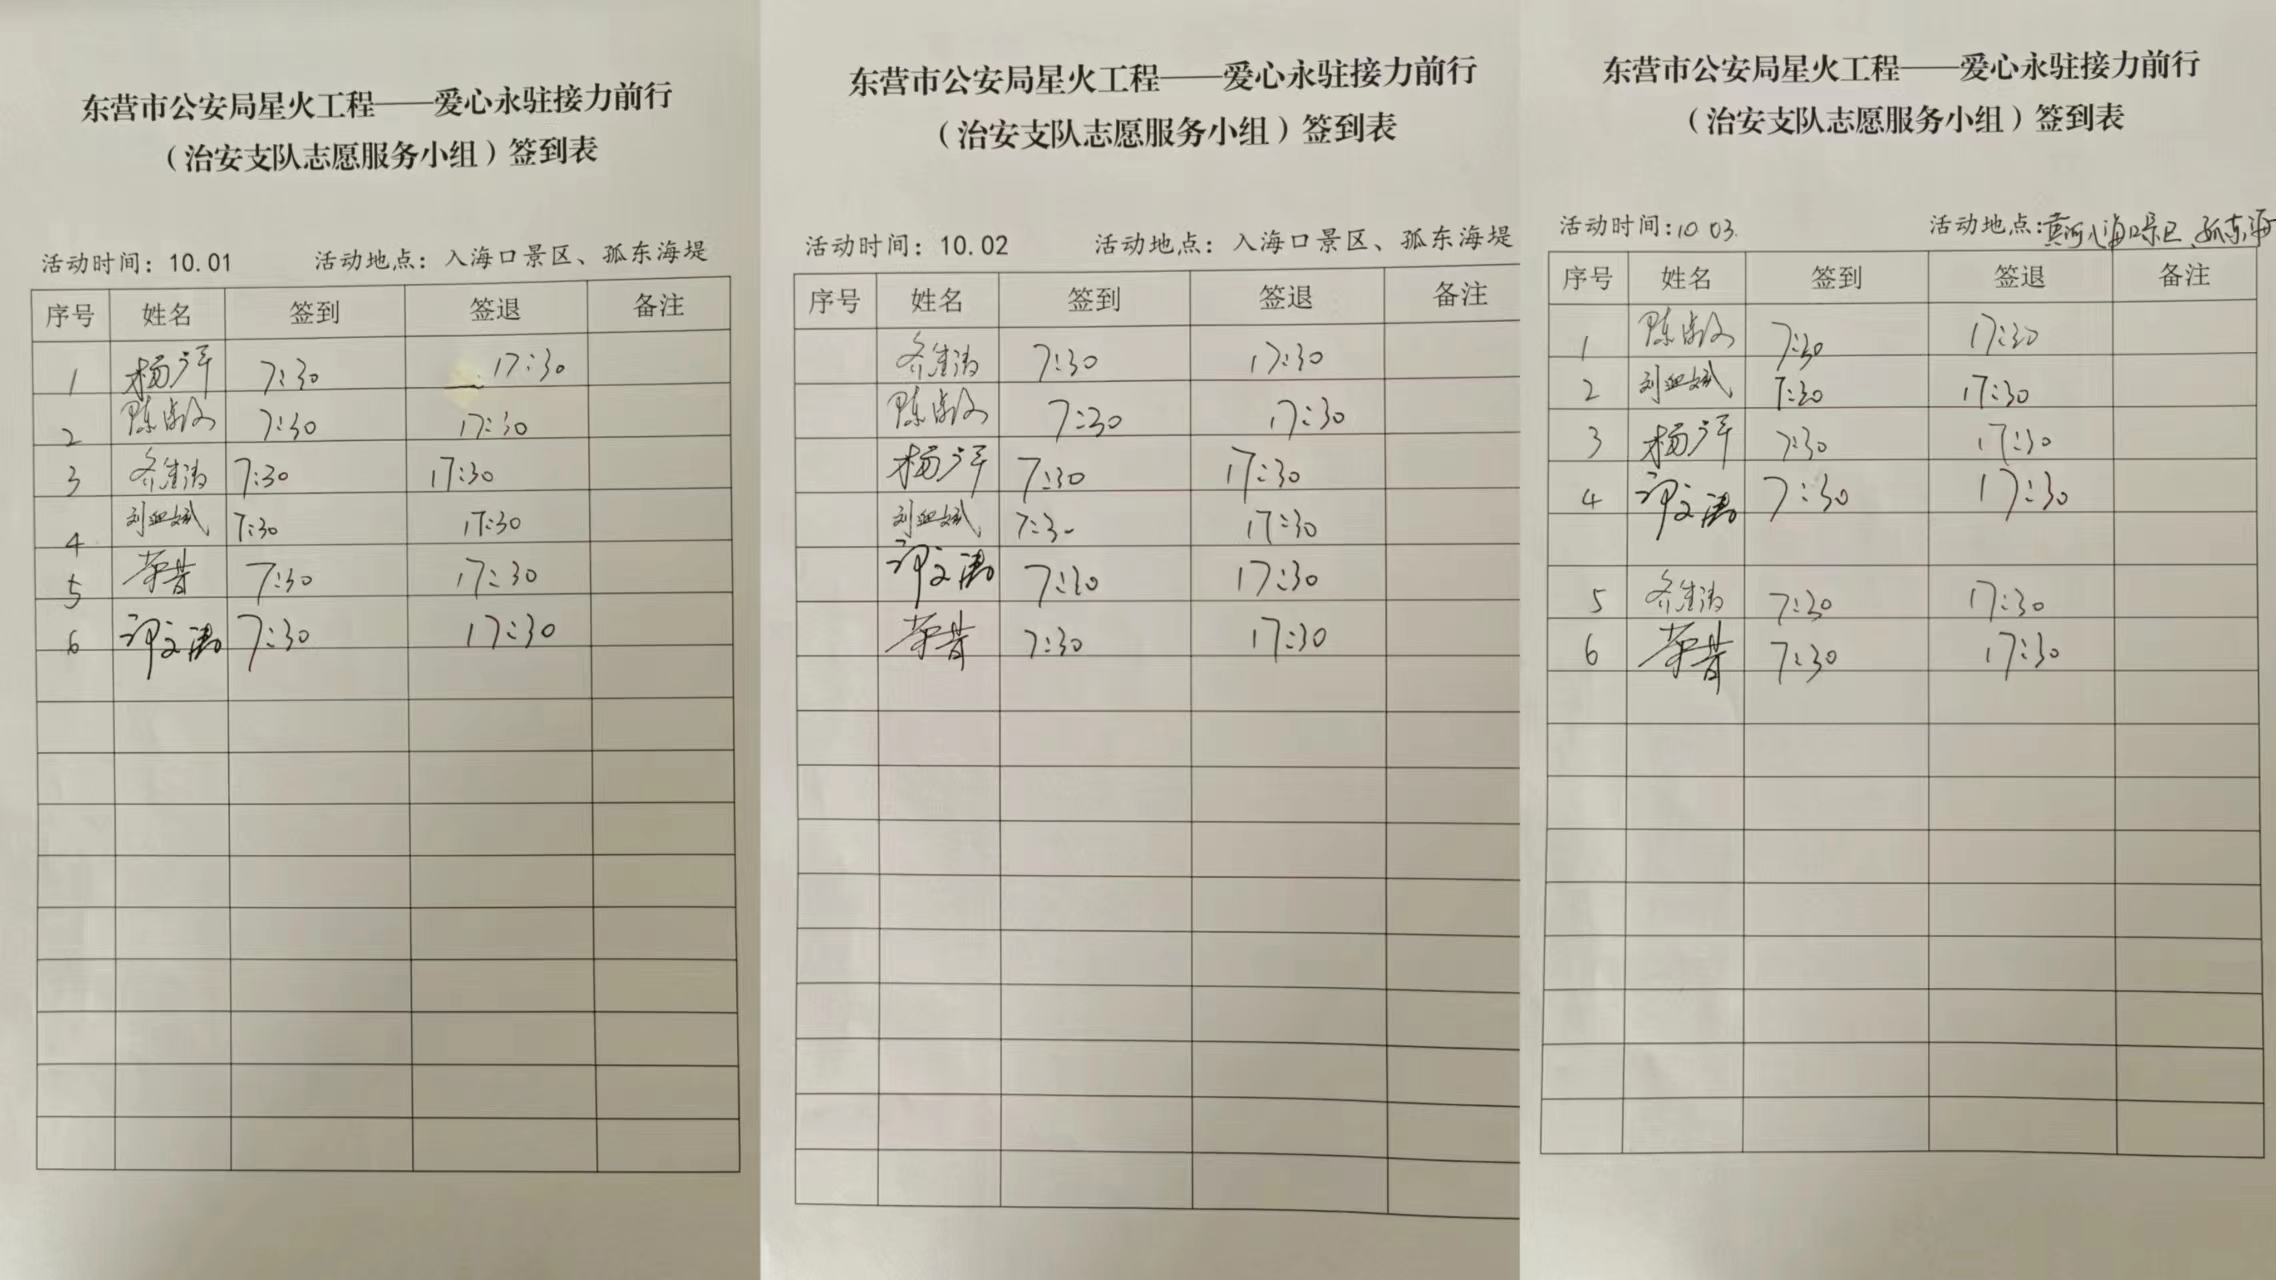 东营市公安局星火工程——爱心永驻接力前行
（治安支队志愿服务小组）签到表
活动时间：10.01 活动地点：入海口景区、孤东海堤
序号 姓名 签到 签退 备注
1 杨萍 7:30 17:30
2 陈淑 7:30 17:30
3 7:30 17:30
4 刘 斌 7:30 17:30
5 荣昔 7:30 17:30
6 7:30 17:30
东营市公安局星火工程——爱心永驻接力前行
（治安支队志愿服务小组）签到表
活动时间：10.02 活动地点：入海口景区、孤东海堤
序号 姓名 签到 签退 备注
7:30 17:30
陈淑 7:30 17:30
杨萍 7:30 17:30
刘 斌 7:30 17:30
7:30 17:30
荣昔 7:30 17:30
东营市公安局星火工程——爱心永驻接力前行
（治安支队志愿服务小组）签到表
活动时间：10 03. 活动地点：黄河入海口景区、孤东海
序号 姓名 签到 签退 备注
1 陈淑 7:30 17:30
2 刘 斌 7:30 17:30
3 杨萍 7:30 17:30
4 7:30 17:30
5 7:30 17:30
6 荣昔 7:30 17:30